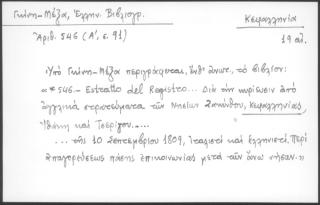 Γκίνη-Μέξα, Ἑλλην. Βιβλιογρ.
Κεφαλληνία
Ἀριθ. 546 (Α', σ. 91)
19 αἰ.
Ὑπὸ Γκίνη-Μέξα περιγράφεται, ἔνθ' ἀνωτ., τὸ βιβλίον:
«*546.- Estratto del Registro... Διὰ τὴν κυρίευσιν ἀπὸ
ἀγγλικὰ στρατεύματα τῶν Νησίων Ζακύνθου, Κεφαλληνίας,
Ἰθάκης καὶ Τσερίγου.....
... τῆς 10 Σεπτεμβρίου 1809, Ἰταλιστὶ καὶ ἑλληνιστί. Περὶ
ἀπαγορεύσεως πάσης ἐπικοινωνίας μετὰ τῶν ἄνω νήσων.»